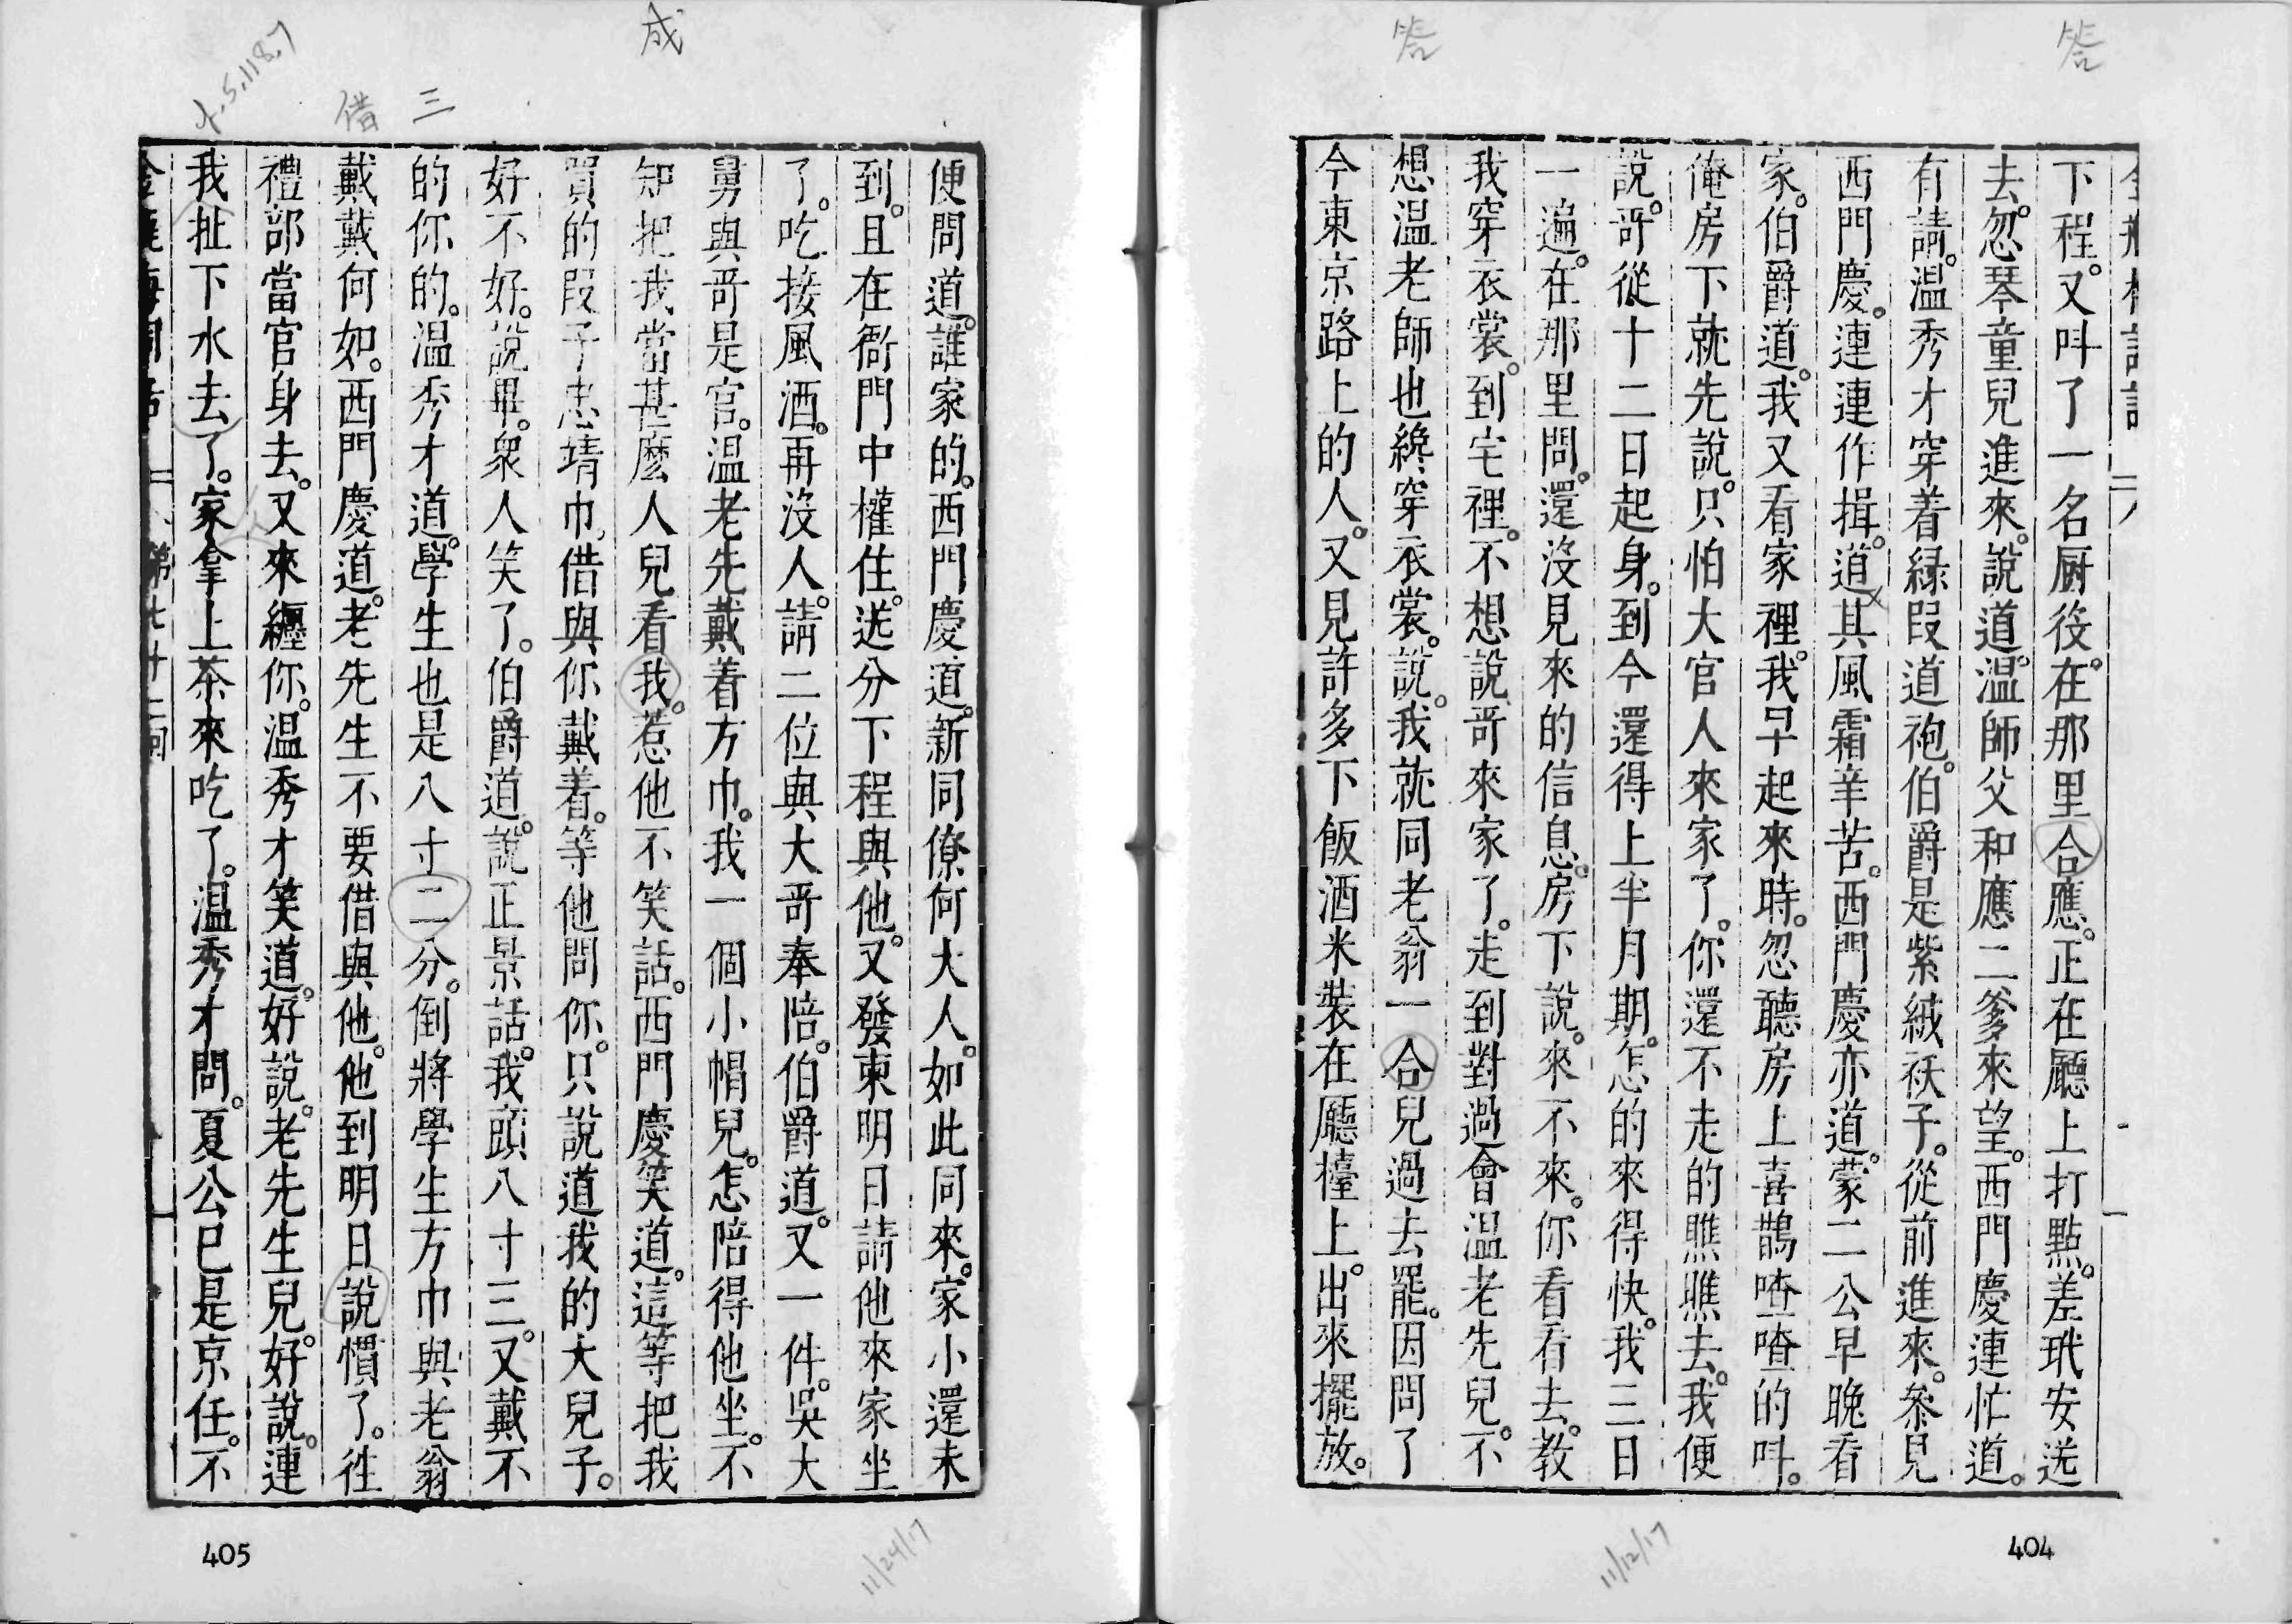 答
答
下程。又呌了一名厨役。在那里合應。正在廳上打點。差玳安送
去。忽琴童兒進來。說道。溫師父和應二爹來望。西門慶連忙道。
有請。溫秀才穿着緑叚道袍。伯爵是紫絨袄子。從前進來。叅見
西門慶。連連作揖。道其風霜辛苦。西門慶亦道。蒙二公早晚看
家。伯爵道。我又看家裡。我早起來時。忽聽房上喜鵲喳喳的呌。
俺房下就先說。只怕大官人來家了。你還不走的瞧瞧去。我便
說。哥從十二日起身。到今還得上半月期。怎的來得快。我三日
一遍。在那里問。還沒見來的信息。房下說。來不來。你看看去。教
我穿衣裳。到宅裡。不想說哥來家了。走到對過會溫老先兒。不
想溫老師也纔穿衣裳。說。我就同老翁一合兒過去罷。因問了
今東京路上的人。又見許多下飯酒米裝在廳檯上。出來擺放。
404
11/12/17
成
三
借
便問道。誰家的。西門慶道。新同僚何大人。如此同來。家小還未
到。且在衙門中權住。送分下程與他。又發柬明日請他來家坐
了。吃接風酒。再沒人。請二位與大哥奉陪。伯爵道。又一件。吳大
舅與哥是官。溫老先戴着方巾。我一個小帽兒。怎陪得他坐。不
知把我當甚麽人兒看我。惹他不笑話。西門慶笑道。這等把我
買的叚子忠靖巾。借與你戴着。等他問你。只說道我的大兒子。
好不好。說畢。衆人笑了。伯爵道。說正景話。我頭八寸三。又戴不
的你的。溫秀才道。學生也是八寸二分。倒將學生方巾與老翁
戴戴何如。西門慶道。老先生不要借與他。他到明日說慣了。徃
禮部當官身去。又來纏你。溫秀才笑道。好說。老先生兒。好說。連
我扯下水去了。家拿上茶來吃了。溫秀才問。夏公已是京任。不
第七十二囘
405
11/24/17